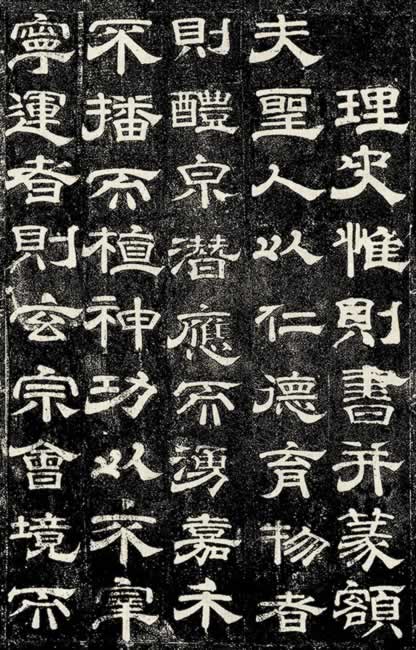 理史惟則書并篆額
夫聖人以仁德育物者
則醴泉潛應而湧嘉禾
不播而植神功以不宰
寧運者則玄宗會境而